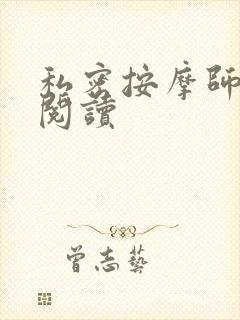 私密按摩師
閱讀
曾志藝